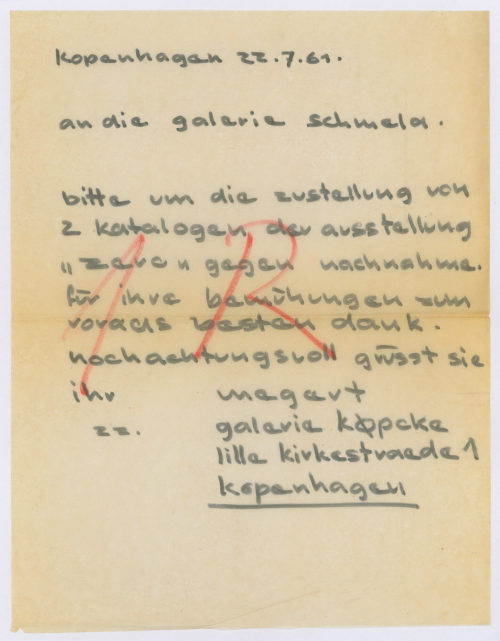 kopenhagen 22.7.61.
an die galerie schmela.
bitte um die zustellung von
2 katalogen der ausstellung
„zero" gegen nachnahme.
für ihre bemühungen zum
voraus besten dank.
hochachtungsvoll grüsst sie
ihr megert
zz. galerie køpcke
lille kirkestraede 1
kopenhagen
1R